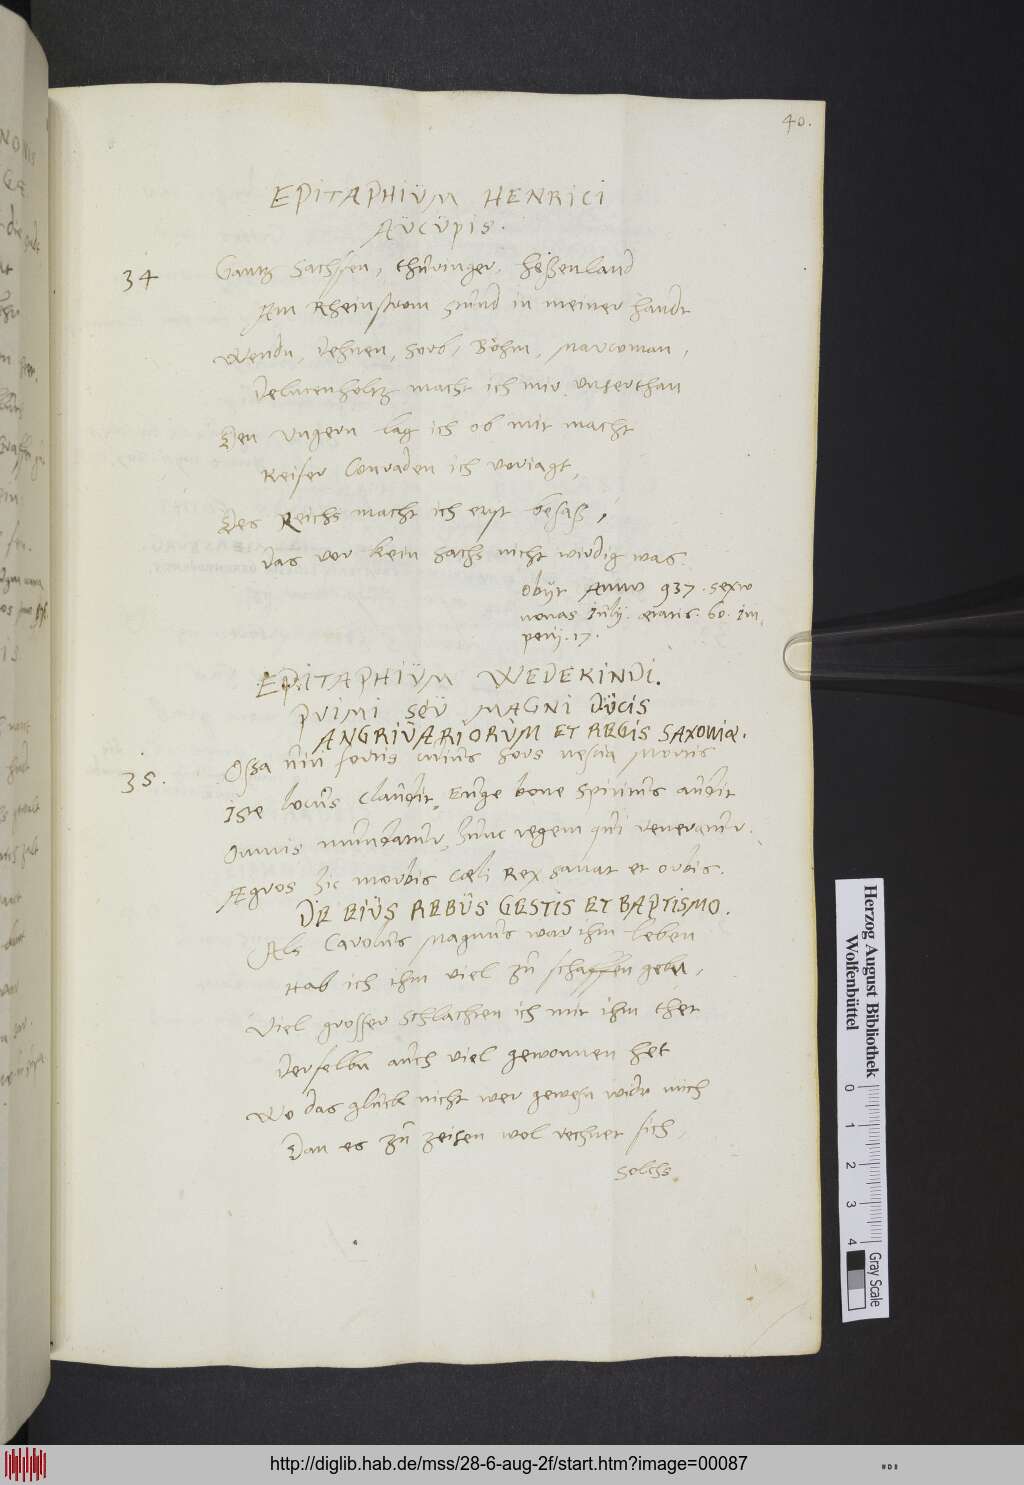 40.
EPITAPHIUM HENRICI
AUCUPIS.
34 Gantz Sachssen, thüringer, heßenland
Am Rheinstrom stund in meiner handt
Wendn, Dehnen, Sorb, Böhm, Marcoman,
macht ich mir unterthan
Den Ungern lag ich ob mit macht
Keiser Conraden ich voriagt,
Des Reichs macht ich erst besaß,
Das vor kein Sachs nicht wirdig was.
obijt Anno 937. sexto
nonas Julij. ætatis. 60. Im-
perij. 17.
EPITAPHIUM WEDEKINDI.
PRIMI SEU MAGNI DUCIS
ANGRIVARIORUM ET REGIS SAXONIÆ.
35. Oßa viri fortis cuius sors nescia mortis
Iste locus claudit, Euge bone spiritus audit
Omnis mundatur, hunc regem qui veneratur.
Ægros hic morbis cæli Rex sanat et orbis.
DE EIUS REBUS GESTIS ET BAPTISMO.
Als Carolus Magnus war ihm leben
Hab ich ihm viel zu schaffen gebn,
Viel grosser Schlachten ich mit ihm thet
Derselbn auch viel gewonnen het
Wo das glück nicht wer gewesn widr mich
Dan es zu zeiten wol rechnet sich,
Solchs
NO IS
Herzog August Bibliothek
Wolfenbüttel
0 1 2 3 4
Gray Scale
http://diglib.hab.de/mss/28-6-aug-2f/start.htm?image=00087